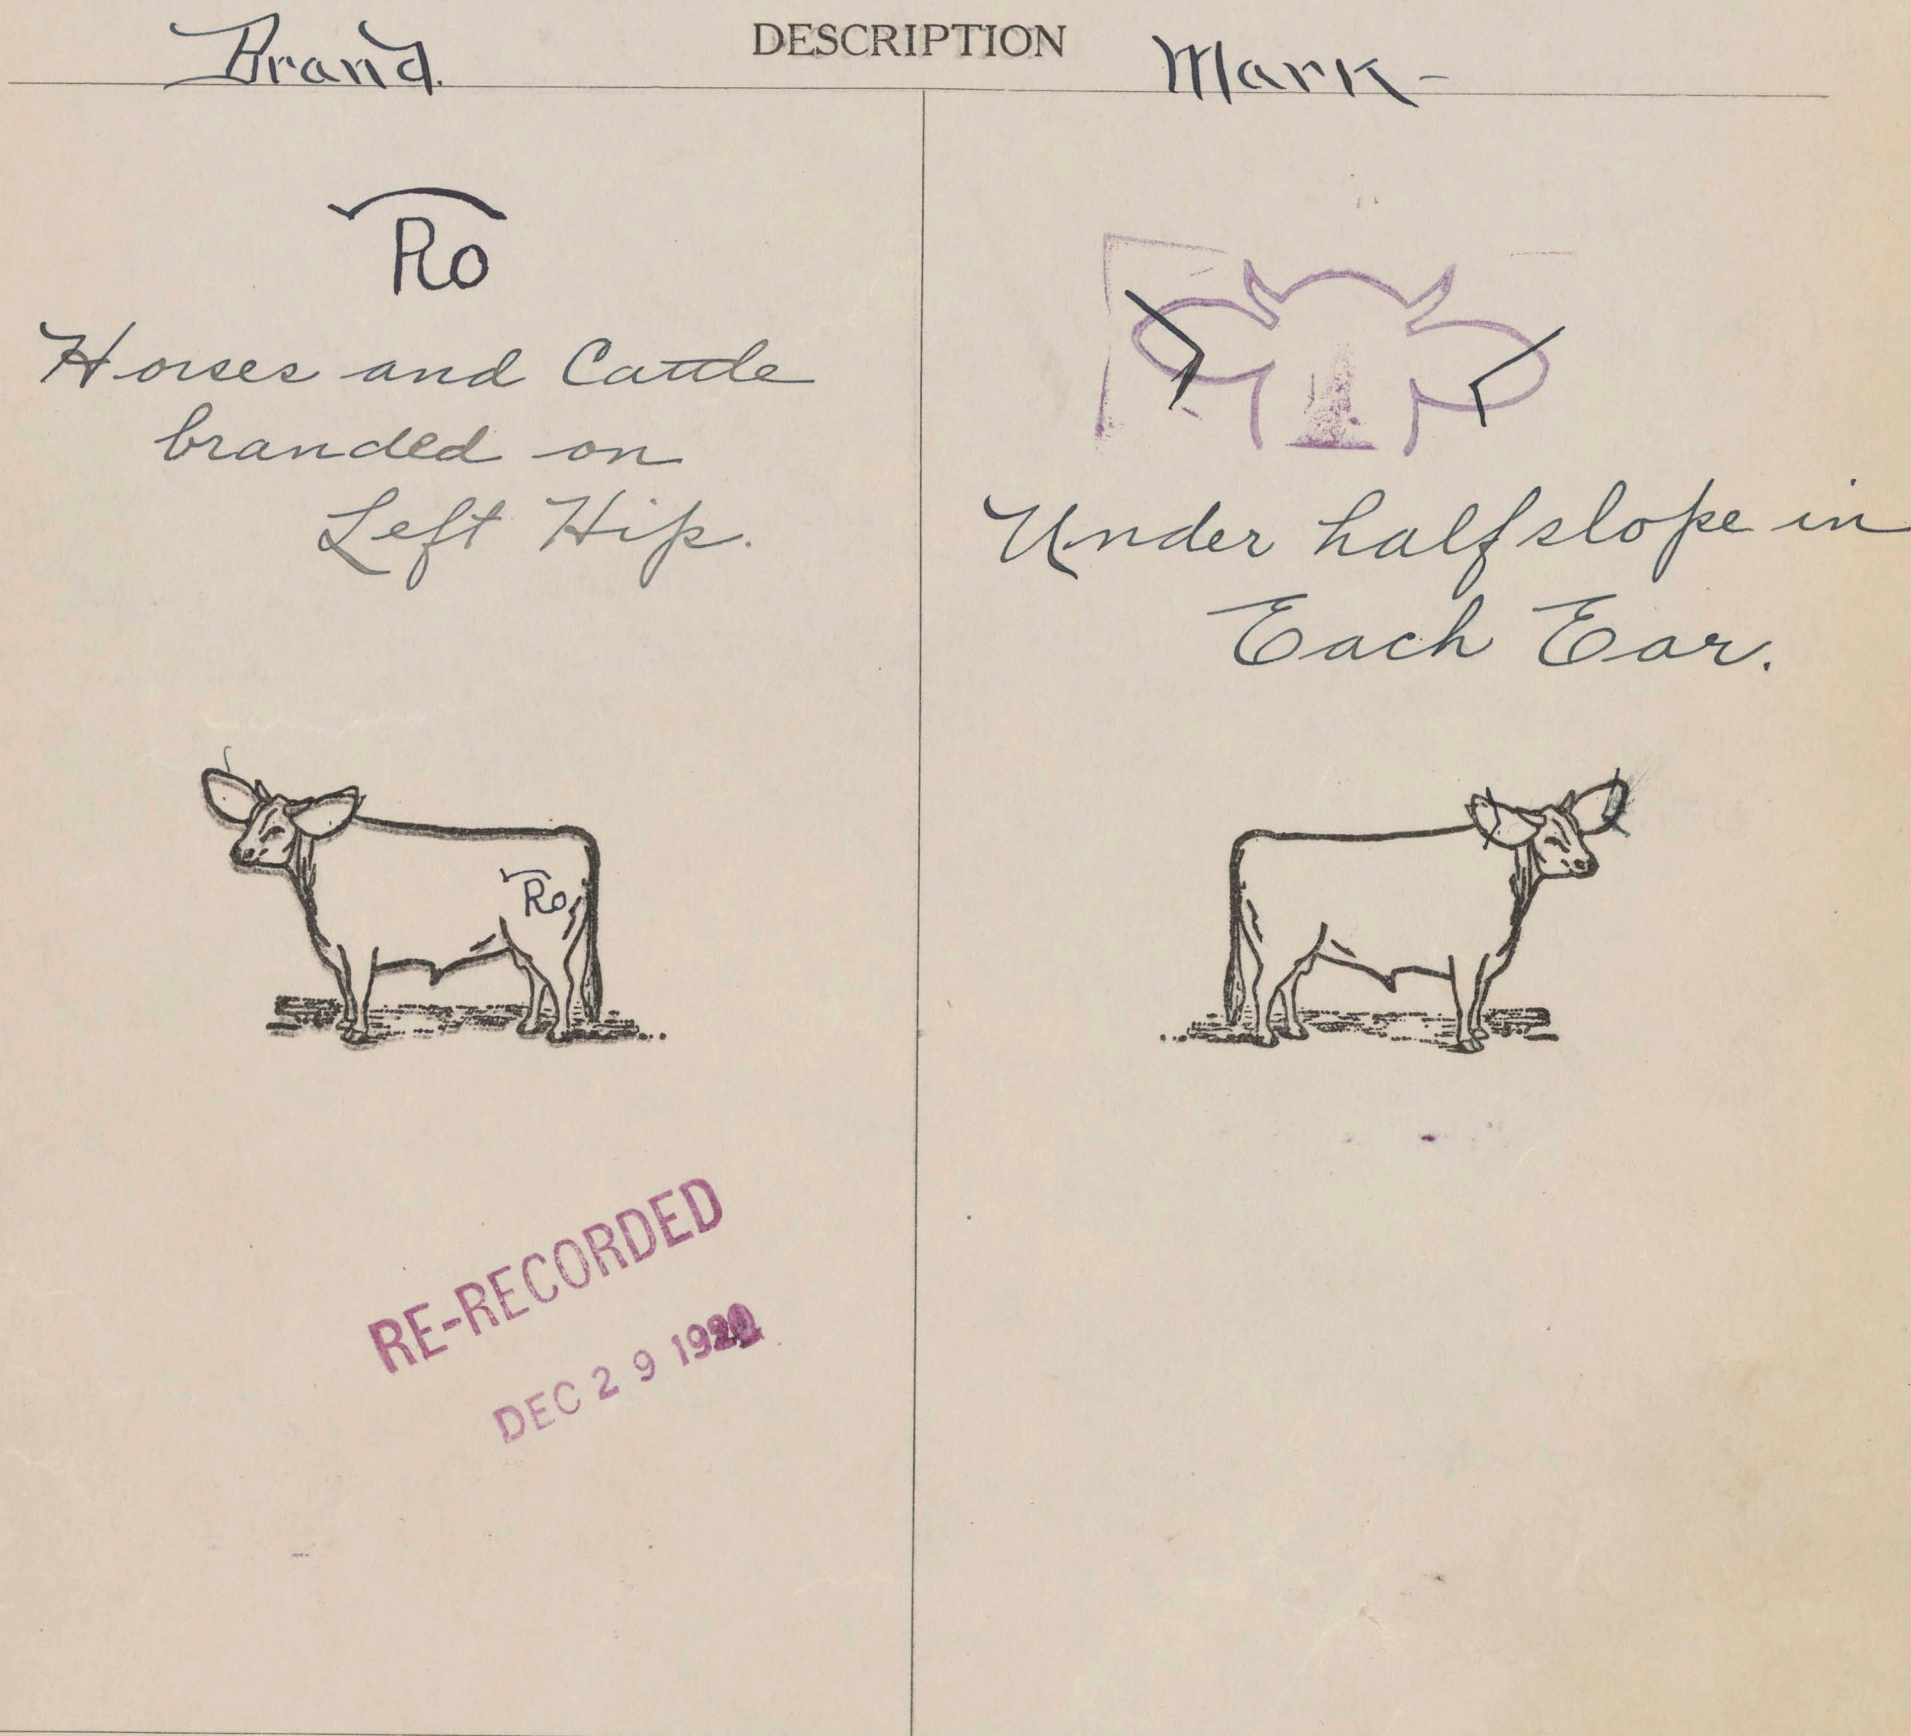 DESCRIPTION
Brand.
Ro
Horses and Cattle
branded on
Left Hip.
Ro
RE-RECORDED
DEC 29
Mark-
Under half slope in
Each Ear.